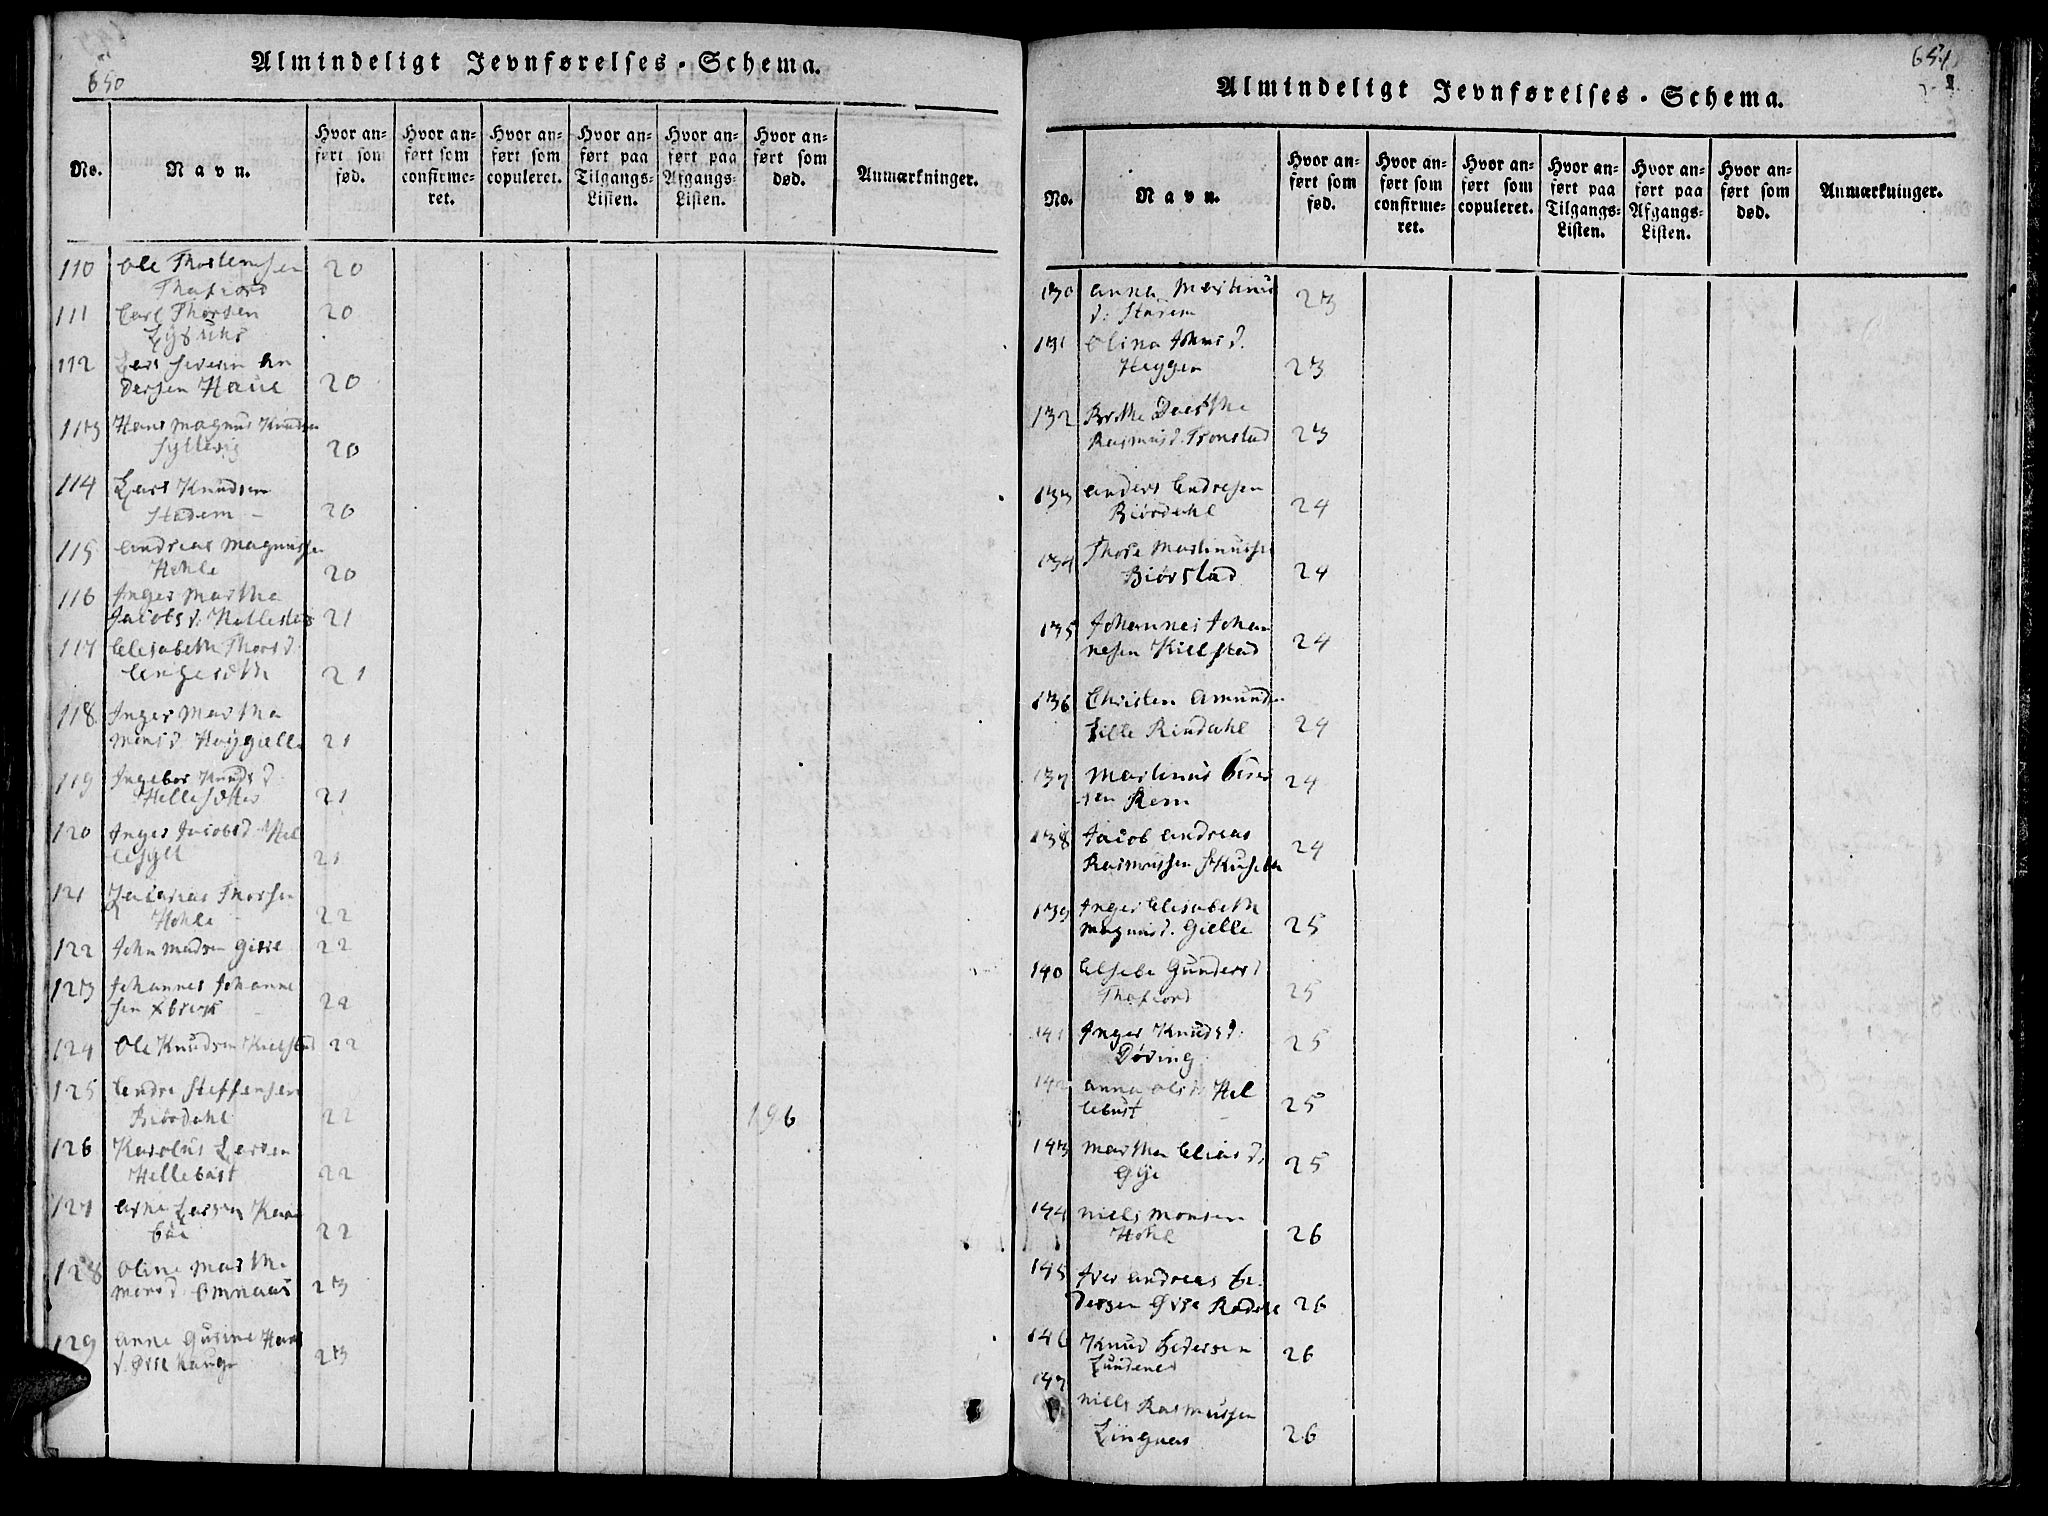 650
Almindeligt Jevnførelses-Schema.
No.
Navn.
Hvor an-
ført som
fød.
Hvor an-
ført som
confirme-
ret.
Hvor an-
ført som
copuleret.
Hvor an-
ført paa
Tilgangs-
Listen.
Hvor an-
ført paa
Afgangs-
Listen.
Hvor an-
ført som
død.
Anmærkninger.
110 Ole Thorstensen
Thafiord 20
111 Carl Thorsen 20
112 Lars Severin An
dersen Haue 20
113 Hans Magnus Knudsen
Syltevig 20
114 Lars Knudsen
Stadem 20
115 Andreas Magnussen
Hohle 20
116 Inger Martha
Jacobs d: 21
117 Elisabeth Thors d.
21
118 Inger Martha
Mons d. 21
119 Ingebor Knuds d.
21
120 Inger Jacobs d. Hel
lesylt 21
121 Zacarias Thorsen
Hohle 22
122 John Madsen 22
123 Johannes Johanne
sen 22
124 Ole Knudsen Kielstad 22
125 Endre Steffensen
Biørdahl 22 196
126 Karolus Larsen
Hellebust 22
127 Arne Larsen
22
128 Oline Martha
Mons d. 23
129 Anne Gurine Hans
d. Øvre Hauge 23
651
Almindeligt Jevnførelses-Schema.
No.
Navn.
Hvor an-
ført som
fød.
Hvor an-
ført som
confirme-
ret.
Hvor an-
ført som
copuleret.
Hvor an-
ført paa
Tilgangs-
Listen.
Hvor an-
ført paa
Afgangs-
Listen.
Hvor an-
ført som
død.
Anmærkninger.
130 Anna Martinus
d: 23
131 Olina Johns d.
Heggen 23
132 Brithe Dorthe
Rasmus d. Tronstad 23
133 Anders Andresen
Biørdahl 24
134 Thore Martinussen
Biørstad 24
135 Johannes Johan
nesen Kielstad 24
136 Christen Amundsen
Lille Rindahl 24
137 Martinus
sen Rem 24
138 Jacob Andreas
Rasmussen 24
139 Inger Elisabeth
Magnus d. Gielle 25
140 Elsebe Gunders d
Thafiord 25
141 Inger Knuds d.
Døving 25
142 Anna Ols d: Hel
lebust 25
143 Martha Elias d:
25
144 Niels Monsen
Hohl 26
145 Iver Andreas Pe
dersen Øvre Rødahl 26
146 Knud Pedersen
Lundenes 26
147 Niels Rasmussen
Lingnes 26